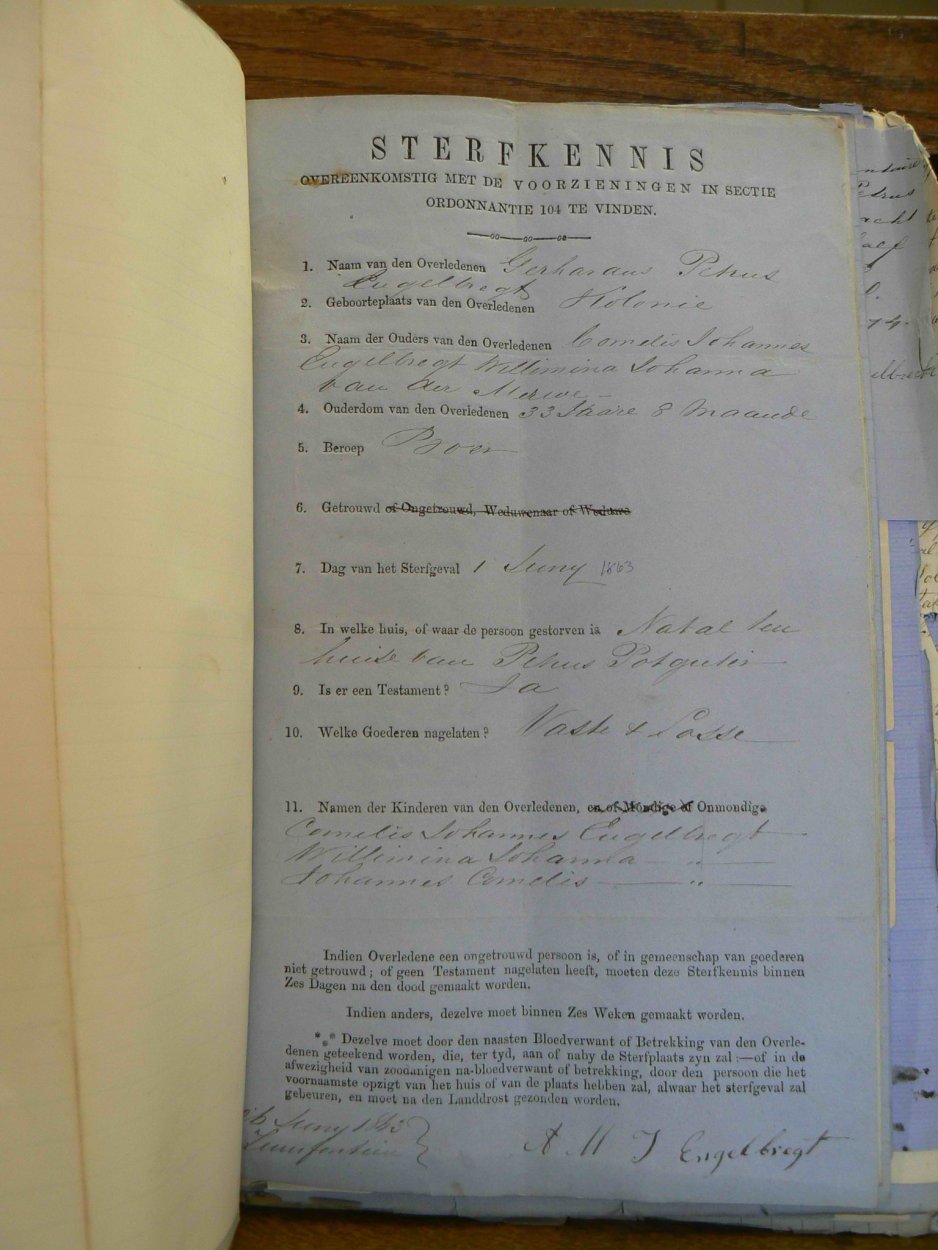 STERFKENNIS
OVEREENKOMSTIG MET DE VOORZIENINGEN IN SECTIE
ORDONNANTIE 104 TE VINDEN.
1. Naam van den Overledenen Gerhardus Petrus
Engelbregt
2. Geboorteplaats van den Overledenen Kolonie
3. Naam der Ouders van den Overledenen Cornelis Johannes
Engelbregt Willimina Johanna
van der Merwe
4. Ouderdom van den Overledenen 33 Jaare 8 maande
5. Beroep Boer
6. Getrouwd of Ongetrouwd, Weduwenaar of Weduwe
7. Dag van het Sterfgeval 1 Juny 1863
8. In welke huis, of waar de persoon gestorven is Natal ten
huise van Petrus Potguter
9. Is er een Testament? Ja
10. Welke Goederen nagelaten? Vaste & Losse
11. Namen der Kinderen van den Overledenen, en of Mondige of Onmondige
Cornelis Johannes Engelbregt
Willimina Johanna — „ —
Johannes Cornelis — „ —
Indien Overledene een ongetrouwd persoon is, of in gemeenschap van goederen
niet getrouwd; of geen Testament nagelaten heeft, moeten deze Sterfkennis binnen
Zes Dagen na den dood gemaakt worden.
Indien anders, dezelve moet binnen Zes Weken gemaakt worden.
*** Dezelve moet door den naasten Bloedverwant of Betrekking van den Overle-
denen geteekend worden, die, ter tyd, aan of naby de Sterfplaats zyn zal:—of in de
afwezigheid van zoodanigen na-bloedverwant of betrekking, door den persoon die het
voornaamste opzigt van het huis of van de plaats hebben zal, alwaar het sterfgeval zal
gebeuren, en moet na den Landdrost gezonden worden.
Juny 1863
A M J Engelbregt